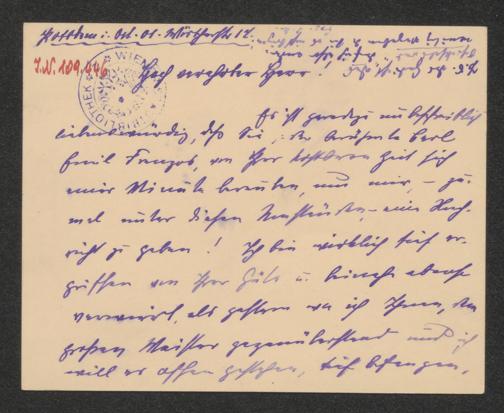 Potsdam i. Wörtherstr 12.
J.N. 109.446
WIENER BIBLIOTHEK
Hoch verehrter Herr!
Es ist geradezu unbeschreiblich
liebenswürdig, daß Sie, der berühmte Carl
Emil Franzos, von Ihrer kostbaren Zeit sich
eine Minute rauben, um mir, – zu-
mal unter diesen Umständen – eine Nach-
richt zu geben! Ich bin wirklich tief er-
griffen von Ihrer Güte u. beinahe ebenso
verwirrt, als gestern wo ich Ihnen, dem
großen Meister gegenüberstand und ich
will es offen gestehen, tief befangen,